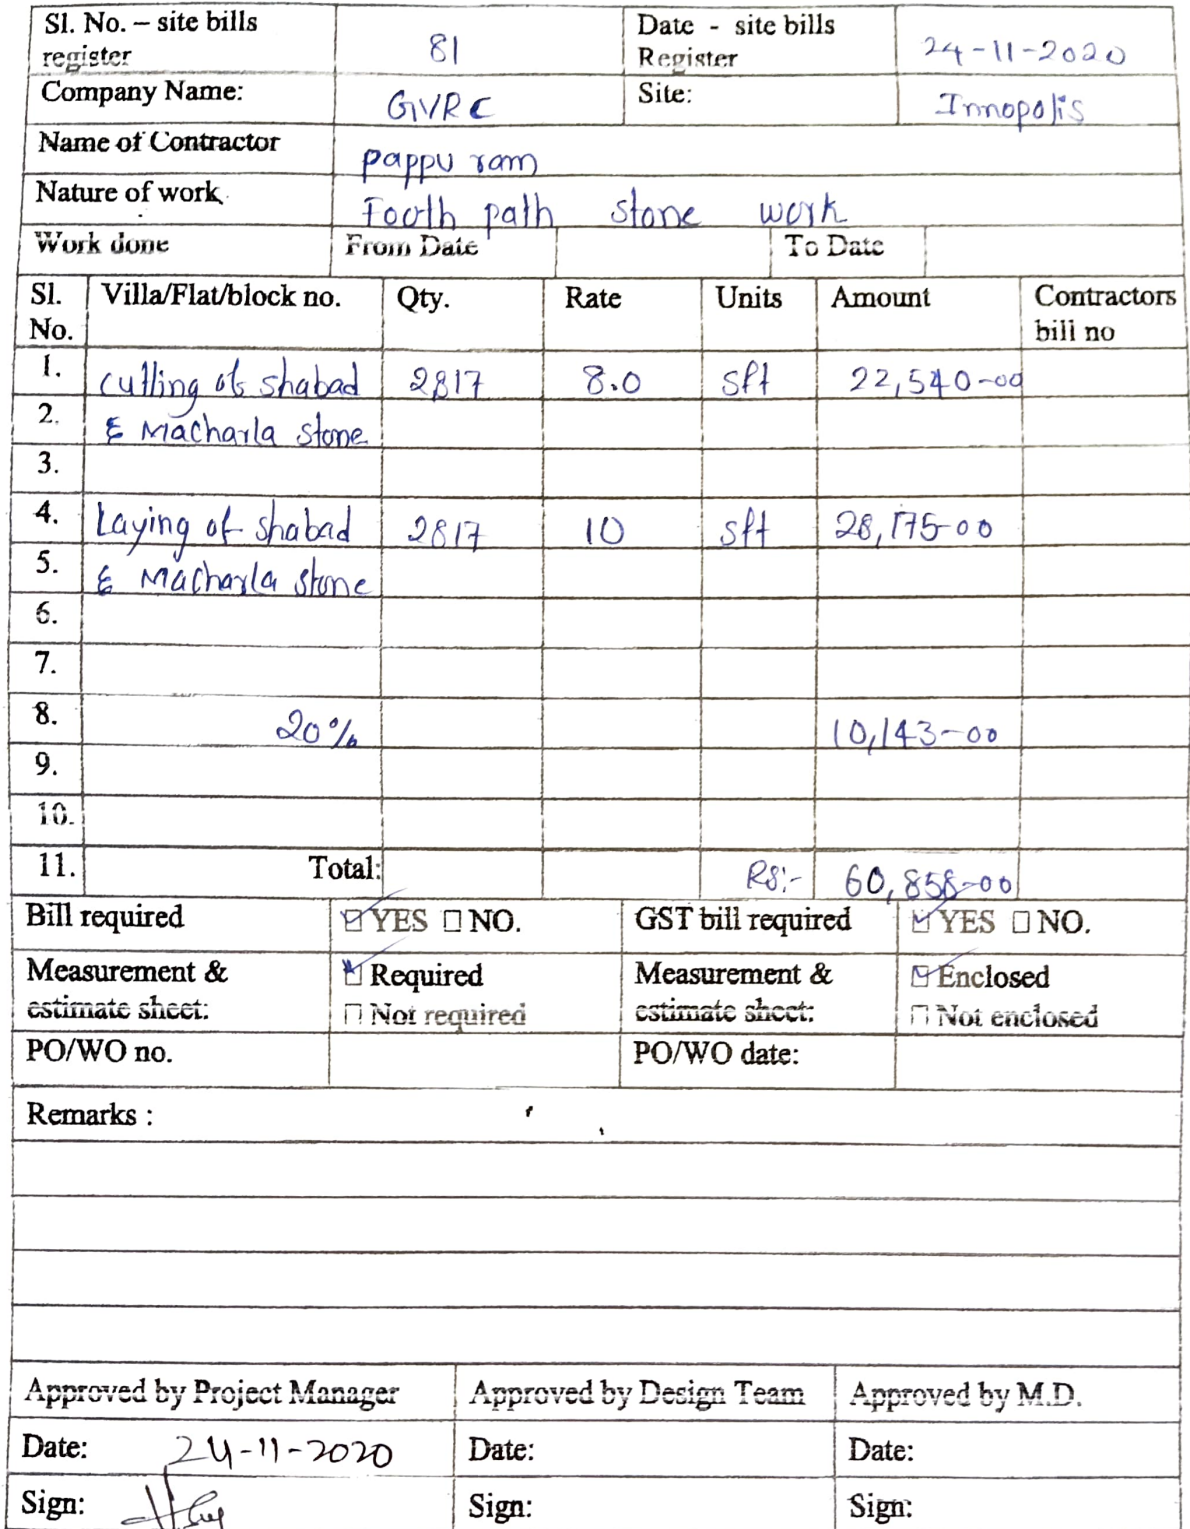 Sl. No. – site bills register 81 Date - site bills Register 24-11-2020
Company Name: GVRC Site: Innopolis
Name of Contractor pappu ram
Nature of work Footh path stone work
Work done From Date To Date
Sl. No. Villa/Flat/block no. Qty. Rate Units Amount Contractors bill no
1. cutting of shabad 2817 8.0 sft 22,540-00
2. & Macharla stone
3.
4. Laying of shabad 2817 10 sft 28,175-00
5. & Macharla stone
6.
7.
8. 20% 10,143-00
9.
10.
11. Total: Rs:- 60,858-00
Bill required ☑ YES ☐ NO. GST bill required ☑ YES ☐ NO.
Measurement & estimate sheet: ☑ Required ☐ Not required Measurement & estimate sheet: ☑ Enclosed ☐ Not enclosed
PO/WO no. PO/WO date:
Remarks :
Approved by Project Manager Approved by Design Team Approved by M.D.
Date: 24-11-2020 Date: Date:
Sign: Sign: Sign: